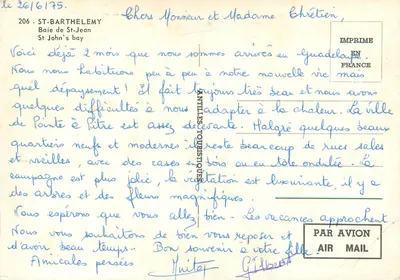 le 26/6/75.
206 - ST-BARTHELEMY
Baie de St-Jean
St John's bay
IMPRIME
EN
FRANCE
ANTILLES TOURISTIQUES
Chers Monsieur et Madame Chrétien,
Voici déjà 2 mois que nous sommes arrivés en Guadeloupe.
Nous nous habituons peu à peu à notre nouvelle vie mais
quel dépaysement ! Il fait toujours très beau et nous avons
quelques difficultés à nous adapter à la chaleur. La ville
de Pointe à Pitre est assez décevante. Malgré quelques beaux
quartiers neufs et modernes il reste beaucoup de rues sales
et vieilles, avec des cases en bois ou en tole ondulée. La
campagne est plus jolie, la végétation est luxuriante, il y a
des arbres et des fleurs magnifiques.
Nous espérons que vous allez bien. Les vacances approchent
Nous vous souhaitons de bien vous reposer et
d'avoir beau temps. Bon souvenir à votre fille.
Amicales pensées
Gilbert
PAR AVION
AIR MAIL